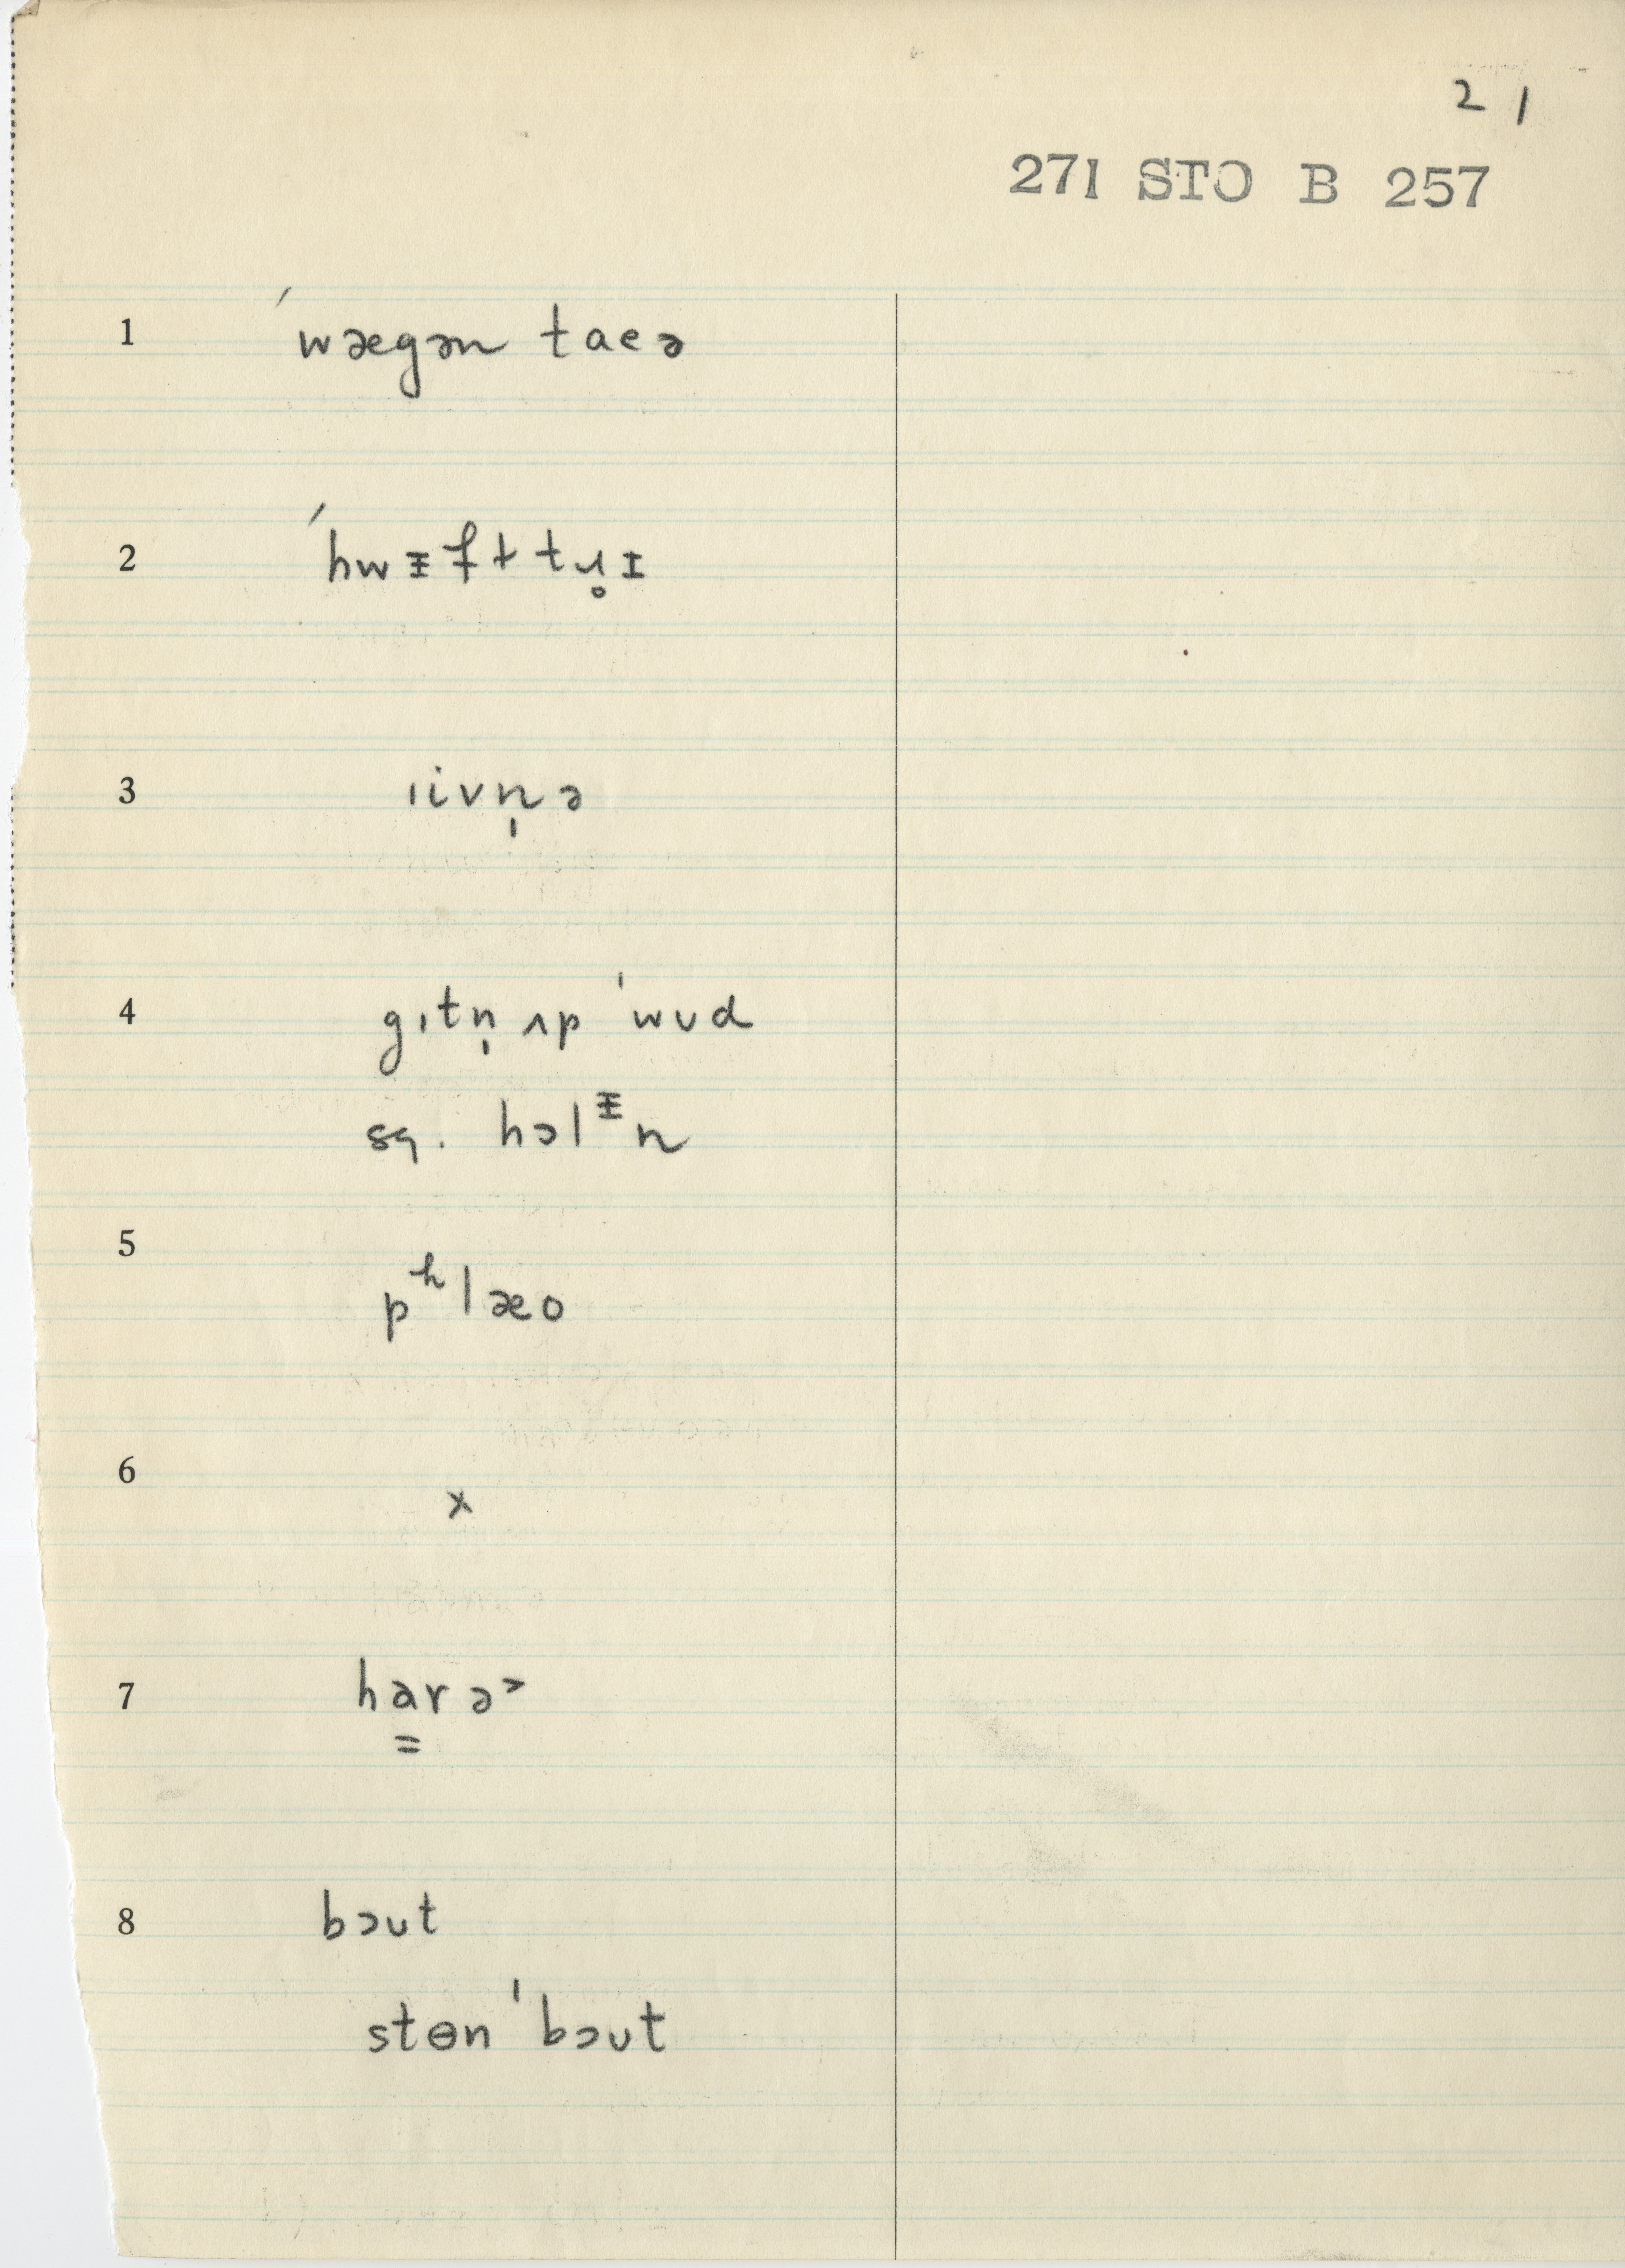 21
271 STO B 257
1 ˈwægən taeə
2 ˈhwᵻfɫt tɹ̥ɪ
3 ıivn̩ə
4 gıtn̩ ʌp ˈwʊd
sq. hɔlᵻn
5 pʰlæo
6 x
7 ha̳rə˃
8 bɔʊt
stɵn ˈbɔʊt